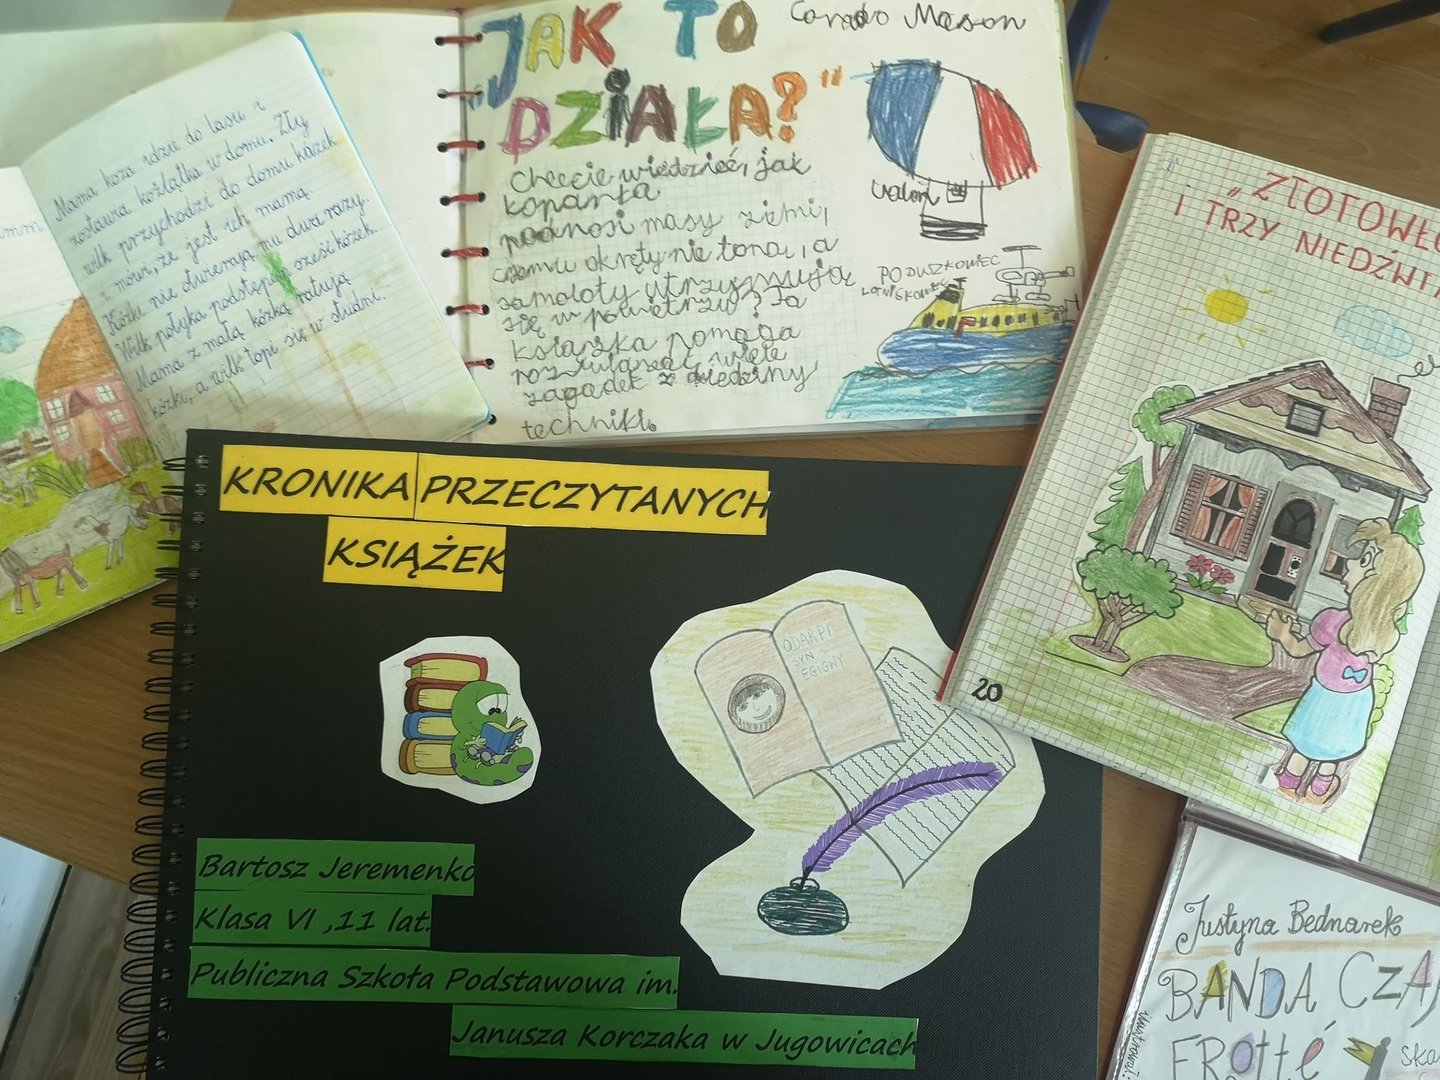 Mama koza idzie do lasu i
zostawia koźlątka w domu. Zły
wilk przychodzi do domu kózek
i mówi, że jest ich mamą.
Kózki nie otwierają mu dwa razy.
Wilk połyka podstępem sześć kózek.
Mama z małą kózką ratują
kózki, a wilk topi się w studni.
"JAK TO
DZIAŁA?"
Mason
Chcecie wiedzieć, jak
koparka
podnosi masy ziemi,
czemu okręty nie toną, a
samoloty utrzymują
się w powietrzu? Ta
książka pomaga
rozwiązać wiele
zagadek z dziedziny
techniki.
balon
PODUSZKOWIEC
KRONIKA PRZECZYTANYCH
KSIĄŻEK
ODARPI
SYN
EGIGWY
Bartosz Jeremenko
Klasa VI ,11 lat.
Publiczna Szkoła Podstawowa im.
Janusza Korczaka w Jugowicach
"ZŁOTOWŁO
I TRZY NIEDŹWI
20
Justyna Bednarek
BANDA CZA
FROTTÉ
ska